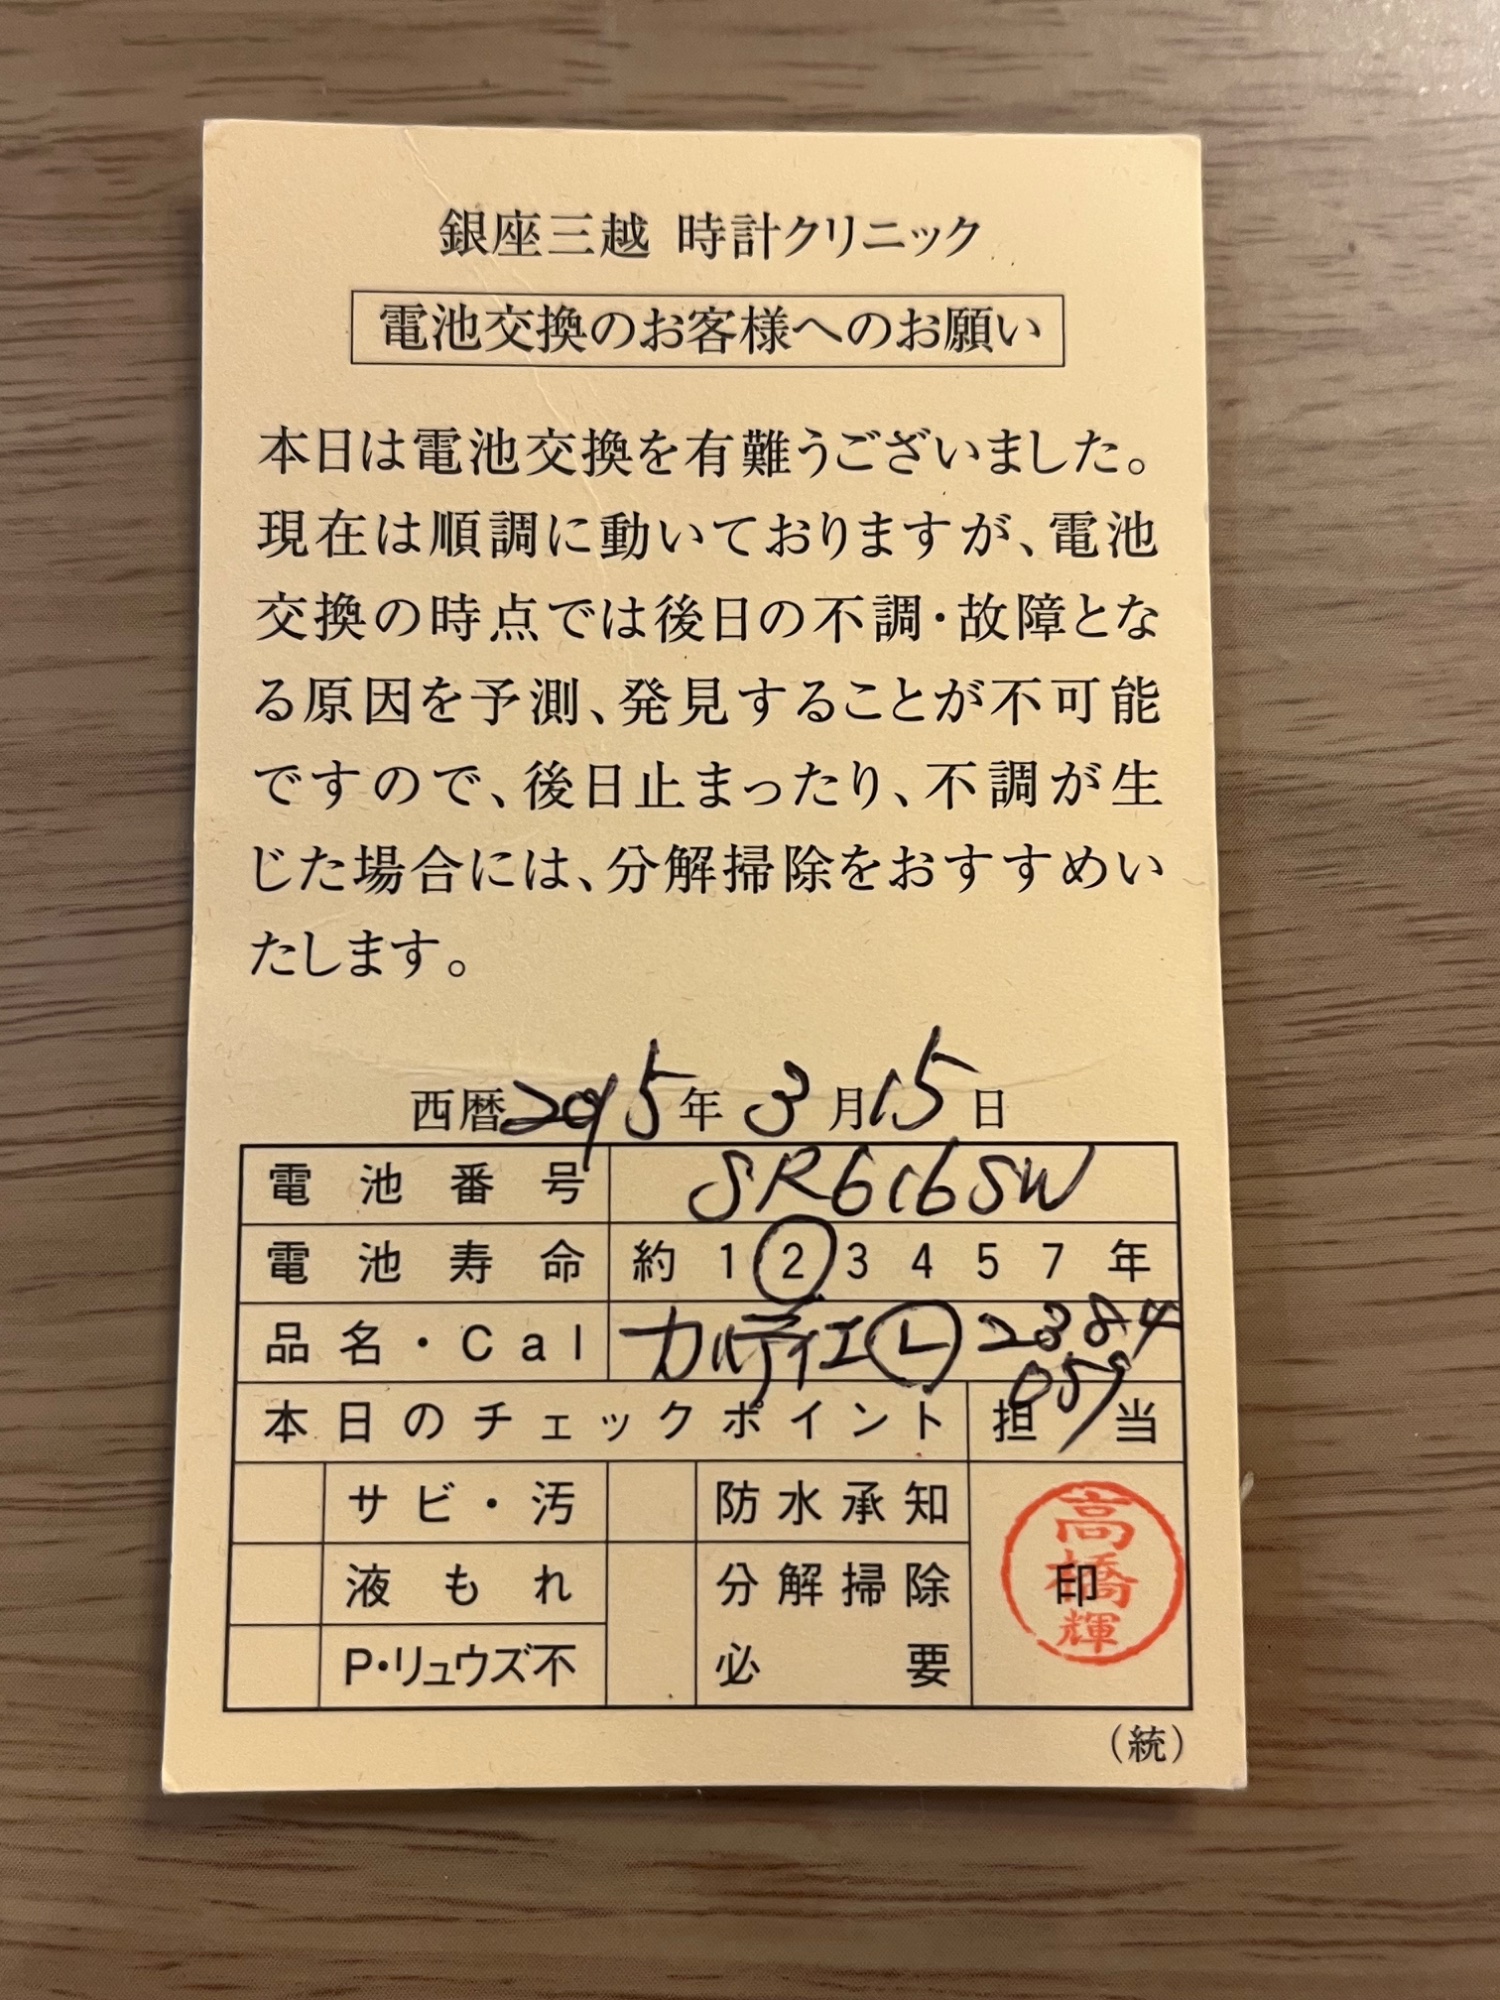 銀座三越 時計クリニック
電池交換のお客様へのお願い
本日は電池交換を有難うございました。
現在は順調に動いておりますが、電池
交換の時点では後日の不調・故障とな
る原因を予測、発見することが不可能
ですので、後日止まったり、不調が生
じた場合には、分解掃除をおすすめい
たします。
西暦2015年3月15日
電池番号 SR616SW
電池寿命 約 1 2 3 4 5 7 年
品名・Cal カルティエ L 2384
057
本日のチェックポイント 担当
サビ・汚 防水承知
液もれ 分解掃除
P・リュウズ不 必要
印
高橋輝
(統)